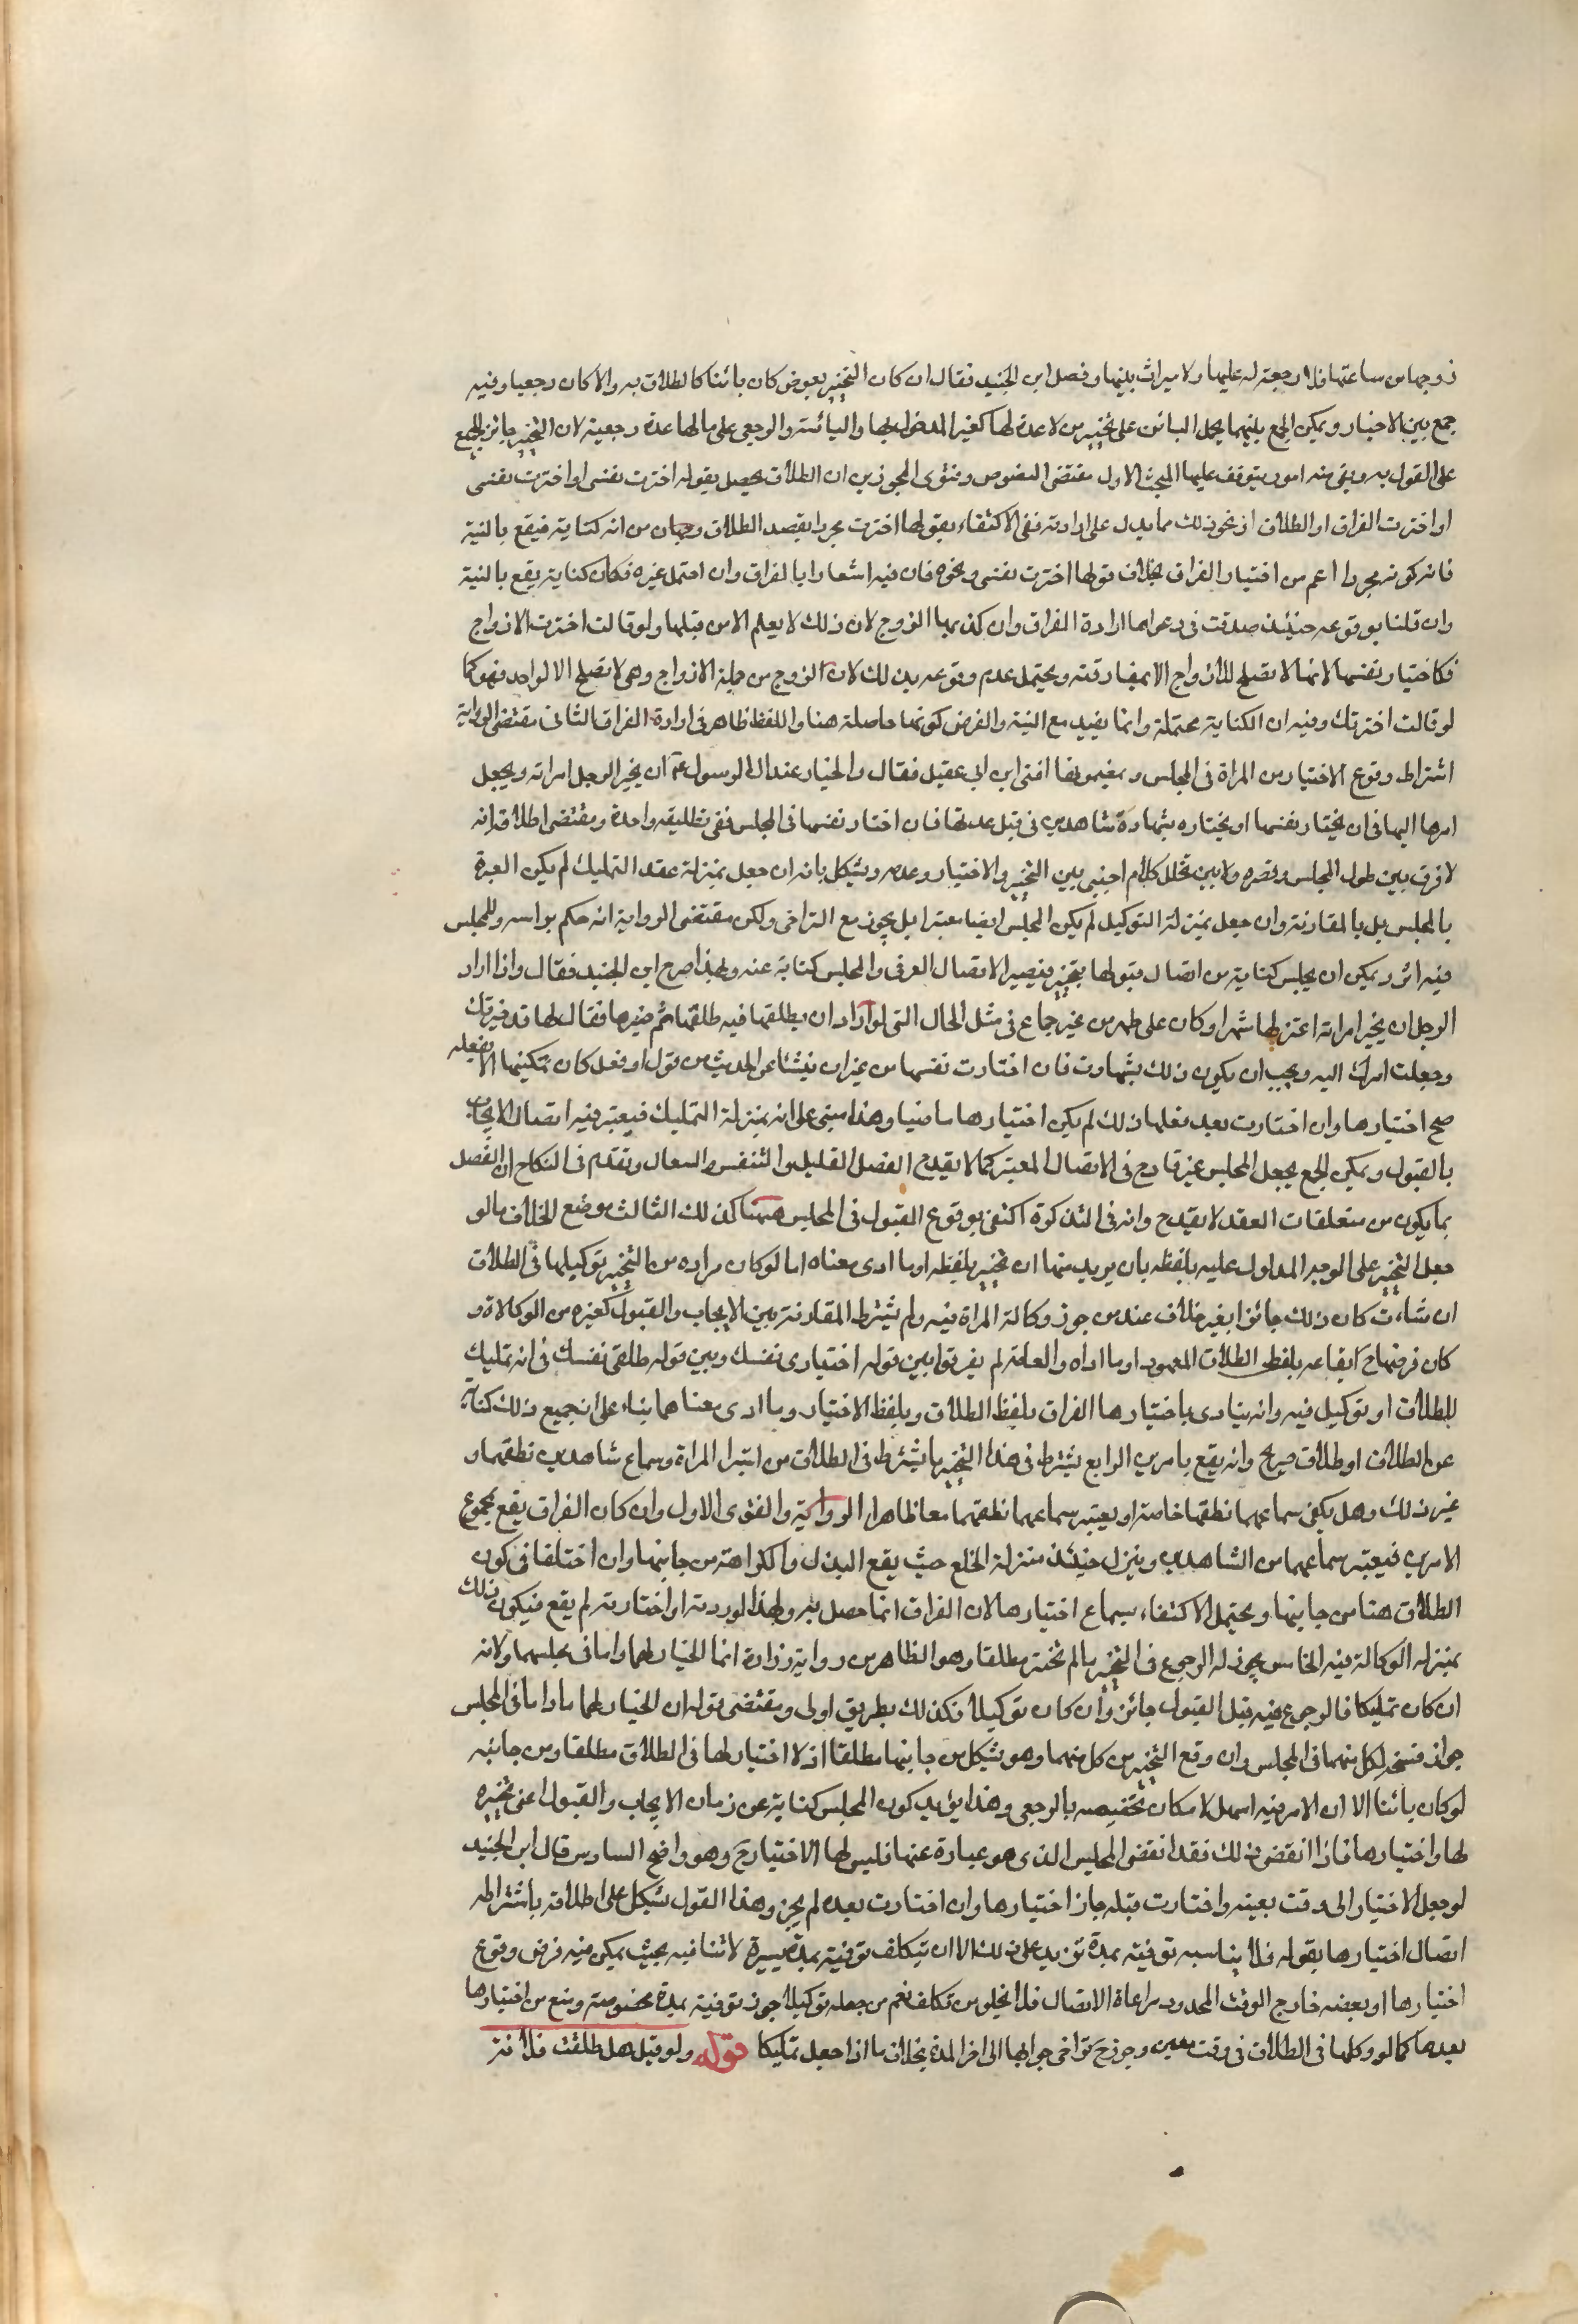 زوجها من ساعتها فلا رجعة له عليها ولا ميراث بينهما وفصل ابن الجنيد فقال ان كان التخيير بعوض كان بائنا كالطلاق به والا كان رجعيا وفيه
جمع بين الاخبار ويمكن الجمع بينهما بحمل البائن على تخيير من لا عدة لها كغير المدخول بها واليائسة والرجعي على ما لها عدة رجعية لان التخيير جائز للجميع
على القول به وبقى منه امور يتوقف عليها البحث الاول مقتضى النصوص وفتوى المجوزين ان الطلاق يحصل بقولها اخترت نفسى او اخترت نفسى
او اخترت الفراق او الطلاق او نحو ذلك مما يدل على ارادته ففى الاكتفاء بقولها اخترت مجردا بقصد الطلاق وجهان من انه كناية فيقع بالنية
فانه كونه مجردا اعم من اختيار الفراق بخلاف قولها اخترت نفسى ونحوه فان فيه اشعارا بالفراق وان احتمل غيره فكان كناية يقع بالنية
وان قلنا بوقوعه حينئذ صدقت فى دعواها ارادة الفراق وان كذبها الزوج لان ذلك لا يعلم الا من قبلها ولو قالت اخترت الازواج
فكاختيار نفسها لانها لا تصلح للازواج الا بمفارقته ويحتمل عدم وقوعه بذلك لان الزوج من جملة الازواج وهى لا تصلح الا لواحد فهو كما
لو قالت اخترتك وفيه ان الكناية محتملة وانما يفيد مع النية والفرض كونها حاصلة هنا واللفظ ظاهر فى ارادة الفراق الثانى مقتضى الرواية
اشتراط وقوع الاختيار من المراة فى المجلس وبمضمونها افتى ابن ابى عقيل فقال والخيار عند ال الرسول عم ان يخير الرجل امراته ويجعل
امرها اليها فى ان يختار نفسها او يختاره بشهادة شاهدين فى قبل عدتها فان اختار نفسها فى المجلس فهى تطليقة واحدة ومقتضى اطلاق انه
لا فرق بين طول المجلس وقصره ولا بين تخلل كلام اجنبى بين التخيير والاختيار وعدمه ويشكل بانه ان جعل بمنزلة عقد التمليك لم يكن العبرة
بالمجلس بل بالمقارنة وان جعل بمنزلة التوكيل لم يكن المجلس ايضا معتبرا بل يجوز مع التراخى ولكن مقتضى الرواية انه حكم براسه وللمجلس
فيه اثر ويمكن ان يجلس كناية من اتصال قبولها بتخييره فيصير الاتصال العرفى والمجلس كناية عنه ولهذا صرح ابن الجنيد فقال واذا اراد
الرجل ان يخير امراته اعتزلها شهرا وكان على طهر من غير جماع فى مثل الحال التى لو اراد ان يطلقها فيه طلقها ثم خيرها فقال لها قد خيرتك
وجعلت امرك اليه ويجب ان يكون ذلك بشهادة فان اختارت نفسها من غير ان يتشاغل بحديث من قول او فعل كان يمكنها الا تفعله
صح اختيارها وان اختارت بعد فعلها ذلك لم يكن اختيارها ماضيا وهذا مبنى على انه بمنزلة التمليك فيعتبر فيه اتصال الايجاب
بالقبول ويمكن الجمع بجعل المجلس غير قادح فى الاتصال المعتبر كما لا يقدح الفصل القليل والتنفس والسعال وتقدم فى النكاح ان الفصل
بما يكون من متعلقات العقد لا يقدح وانه فى التذكرة اكتفى بوقوع القبول فى المجلس ههنا كذلك الثالث موضع الخلاف ما لو
جعل التخيير على الوجه المدلول عليه بلفظه بان يريد منها ان تخيير بلفظه او ما ادى معناه اما لو كان مراده من التخيير توكيلها فى الطلاق
ان شاءت كان ذلك جائزا بغير خلاف عند من جوز وكالة المراة فيه ولم يشترط المقارنة بين الايجاب والقبول كغيره من الوكالة و
كان فرضها ح ايقاعه بلفظ الطلاق المعهود او ما اداه والعامة لم يفرقوا بين قوله اختيارى نفسك وبين قوله طلقى نفسك فى انه تمليك
للطلاق او توكيل فيه وانه يتادى باختيارها الفراق بلفظ الطلاق وبلفظ الاختيار وما ادى معناهما بناء على ان جميع ذلك كناية
عن الطلاق او طلاق صريح وانه يقع بامرين الرابع يشترط فى هذا التخيير ما يشترط فى الطلاق من استبراء المراة وسماع شاهدين نطقهما و
غير ذلك وهل يكفى سماعهما نطقها خاصة او يعتبر سماعهما نطقهما معا ظاهر الرواية والفتوى الاول وان كان الفراق يقع بمجموع
الامرين فيعتبر سماعهما من الشاهدين وينزل حينئذ منزلة الخلع حيث يقع البذل والكراهة من جانبها وان اختلفا فى كون
الطلاق هنا من جانبها ويحتمل الاكتفاء بسماع اختيارها لان الفراق انما حصل به ولهذا لو ردته او اختارته لم يقع فيكون ذلك
بمنزلة الوكالة فيه الخامس يجوز له الرجوع فى التخيير ما لم تختر مطلقا وهو الظاهر من رواية زرارة انما الخيار لهما داما فى مجلسهما ولانه
ان كان تمليكا فالرجوع فيه قبل القبول جائز وان كان توكيلا فكذلك بطريق اولى ومقتضى قوله ان الخيار لهما ما داما فى المجلس
جواز فسخه لكل منهما فى المجلس وان وقع التخيير من كل منهما وهو يشكل من جانبها مطلقا اذ لا اختيار لها فى الطلاق مطلقا ومن جانبه
لو كان بائنا الا ان الامر فيه اسهل لامكان تخصيصه بالرجعى وهذا يؤيد كون المجلس كناية عن زمان الايجاب والقبول اعنى تخييره
لها واختيارها فاذا انقضى ذلك فقد انقضى المجلس الذى هو عبارة عنها فليس لها الاختيار ح وهو واضح السادس قال ابن الجنيد
لو جعل الاختيار الى وقت بعينه واختارت قبله جاز اختيارها وان اختارت بعده لم يجز وهذا القول يشكل على اطلاقه باشتراطه
اتصال اختيارها بقوله فلا يناسبه توقيته بمدة تزيد على ذلك الا ان يتكلف توقيته بمدة يسيرة لا تنافيه بحيث يمكن فيه فرض وقوع
اختيارها او بعضه خارج الوقت المحدود مراعاة الاتصال فلا يخلو من تكلف نعم من جعله توكيلا جوز توقيته بمدة مخصوصة ومنع من اختيارها
بعدها كما لو وكلها فى الطلاق فى وقت معين وجوز ح تراخى جوابها الى اخر المدة بخلاف ما اذا جعل تمليكا قوله ولو قيل هل طلقت فلانة